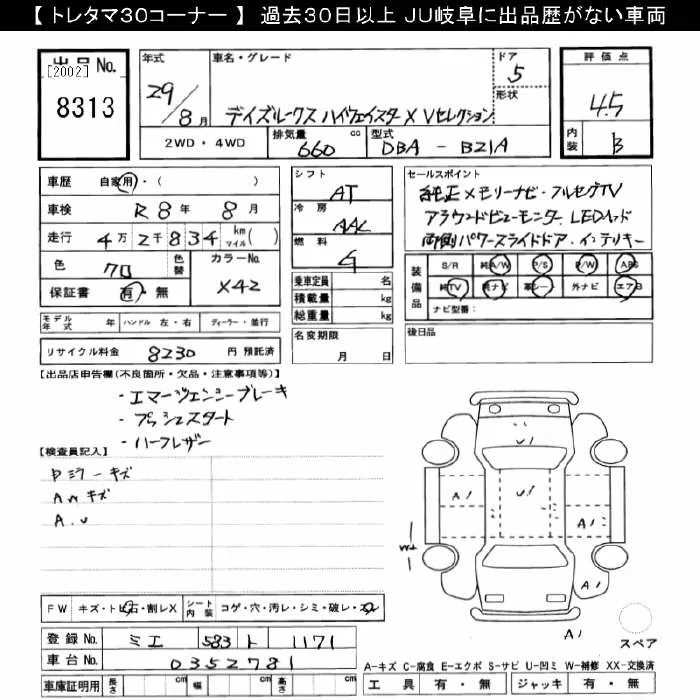 【 トレタマ３０コーナー 】 過去３０日以上 ＪＵ岐阜に出品歴がない車両
出品No.
[2002]
8313
年式
29/8月
車名・グレード
デイズルークス ハイウェイスターX Vセレクション
ドア
5
形状
評価点
4.5
内装
B
2WD・4WD
排気量
660
cc
型式
DBA - B21A
車歴 自家用・( )
車検 R8年 8月
走行 4万2千834 km マイル( )
色 クロ
色替
カラーNo. X42
保証書 有・無
シフト
AT
冷房
AAC
燃料
G
乗車定員 名
積載量 kg
総重量 kg
セールスポイント
純正メモリーナビ・フルセグTV
アラウンドビューモニター LEDヘッド
両側パワースライドドア・インテリキー
装備品
S/R 純A/W P/S P/W ABS
純TV 純ナビ 革シート 外ナビ エアB
ナビ型番：
モデル年式 年
ハンドル 左・右
ディーラー・並行
名変期限
月 日
後日品
リサイクル料金 8230 円 預託済
【出品店申告欄(不良箇所・欠品・注意事項等)】
・エマージェンシーブレーキ
・プッシュスタート
・ハーフレザー
【検査員記入】
Rミラーキズ
AWキズ
A.U
U1
A1
U1
A1
A1
A1
A1
スペア
FW キズ・トビ石・割レX
シート内装 コゲ・穴・汚レ・シミ・破レ・スレ
登録No. ミエ 583 ト 1171
車台No. 0352781
車庫証明用 長さ cm 幅 cm 高さ cm
A-キズ C-腐食 E-エクボ S-サビ U-凹ミ W-補修 XX-交換済
工具 有・無 ジャッキ 有・無